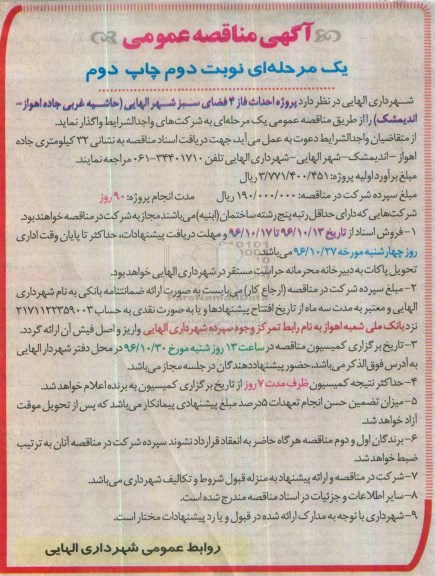 آگهی مناقصه عمومی
یک مرحله‌ای نوبت دوم چاپ دوم
شهرداری الهایی در نظر دارد پروژه احداث فاز ۴ فضای سبز شهر الهایی (حاشیه غربی جاده اهواز-
اندیمشک) را از طریق مناقصه عمومی یک مرحله‌ای به شرکت‌های واجدالشرایط واگذار نماید.
از متقاضیان واجدالشرایط دعوت به عمل می‌آید، جهت دریافت اسناد مناقصه به نشانی ۳۲ کیلومتری جاده
اهواز - اندیمشک- شهر الهایی- شهرداری الهایی تلفن ۳۴۴۰۱۷۱۰-۰۶۱ مراجعه نمایند.
مبلغ برآورد اولیه پروژه: ۳/۷۷۱/۴۰۰/۴۵۱ ریال
مبلغ سپرده شرکت در مناقصه: ۱۹۰/۰۰۰/۰۰۰ ریال مدت انجام پروژه: ۹۰ روز
شرکت‌هایی که دارای حداقل رتبه پنج رشته ساختمان (ابنیه) می‌باشند مجاز به شرکت در مناقصه خواهند بود.
۱- فروش اسناد از تاریخ ۹۶/۱۰/۱۳ تا ۹۶/۱۰/۱۷ و مهلت دریافت پیشنهادات، حداکثر تا پایان وقت اداری
روز چهارشنبه مورخه ۹۶/۱۰/۲۷ می‌باشد.
تحویل پاکات به دبیرخانه محرمانه حراست مستقر در شهرداری الهایی خواهد بود.
۲- مبلغ سپرده شرکت در مناقصه (ارجاع کار) می‌بایست به صورت ارائه ضمانتنامه بانکی به نام شهرداری
الهایی و معتبر به مدت سه ماه از تاریخ افتتاح پیشنهادها و یا به صورت نقدی به حساب ۲۱۷۱۱۲۲۳۵۹۰۰۳
نزد بانک ملی شعبه اهواز به نام رابط تمرکز وجوه سپرده شهرداری الهایی واریز و اصل فیش آن ارائه گردد.
۳- تاریخ برگزاری کمیسیون مناقصه در ساعت ۱۳ روز شنبه مورخ ۹۶/۱۰/۳۰ در محل دفتر شهردار الهایی
به آدرس فوق‌الذکر می‌باشد، حضور پیشنهاددهندگان در جلسه مجاز می‌باشد.
۴- حداکثر نتیجه کمیسیون ظرف مدت ۷ روز از تاریخ برگزاری کمیسیون به برنده اعلام خواهد شد.
۵- میزان تضمین حسن انجام تعهدات ۵درصد مبلغ پیشنهادی پیمانکار می‌باشد که پس از تحویل موقت
آزاد خواهد شد.
۶- برندگان اول و دوم مناقصه هرگاه حاضر به انعقاد قرارداد نشوند سپرده شرکت در مناقصه آنان به ترتیب
ضبط خواهد شد.
۷- شرکت در مناقصه و ارائه پیشنهاد به منزله قبول شروط و تکالیف شهرداری می‌باشد.
۸- سایر اطلاعات و جزئیات در اسناد مناقصه مندرج شده است.
۹- شهرداری با توجه به مدارک ارائه شده در قبول و یا رد پیشنهادات مختار است.
روابط عمومی شهرداری الهایی